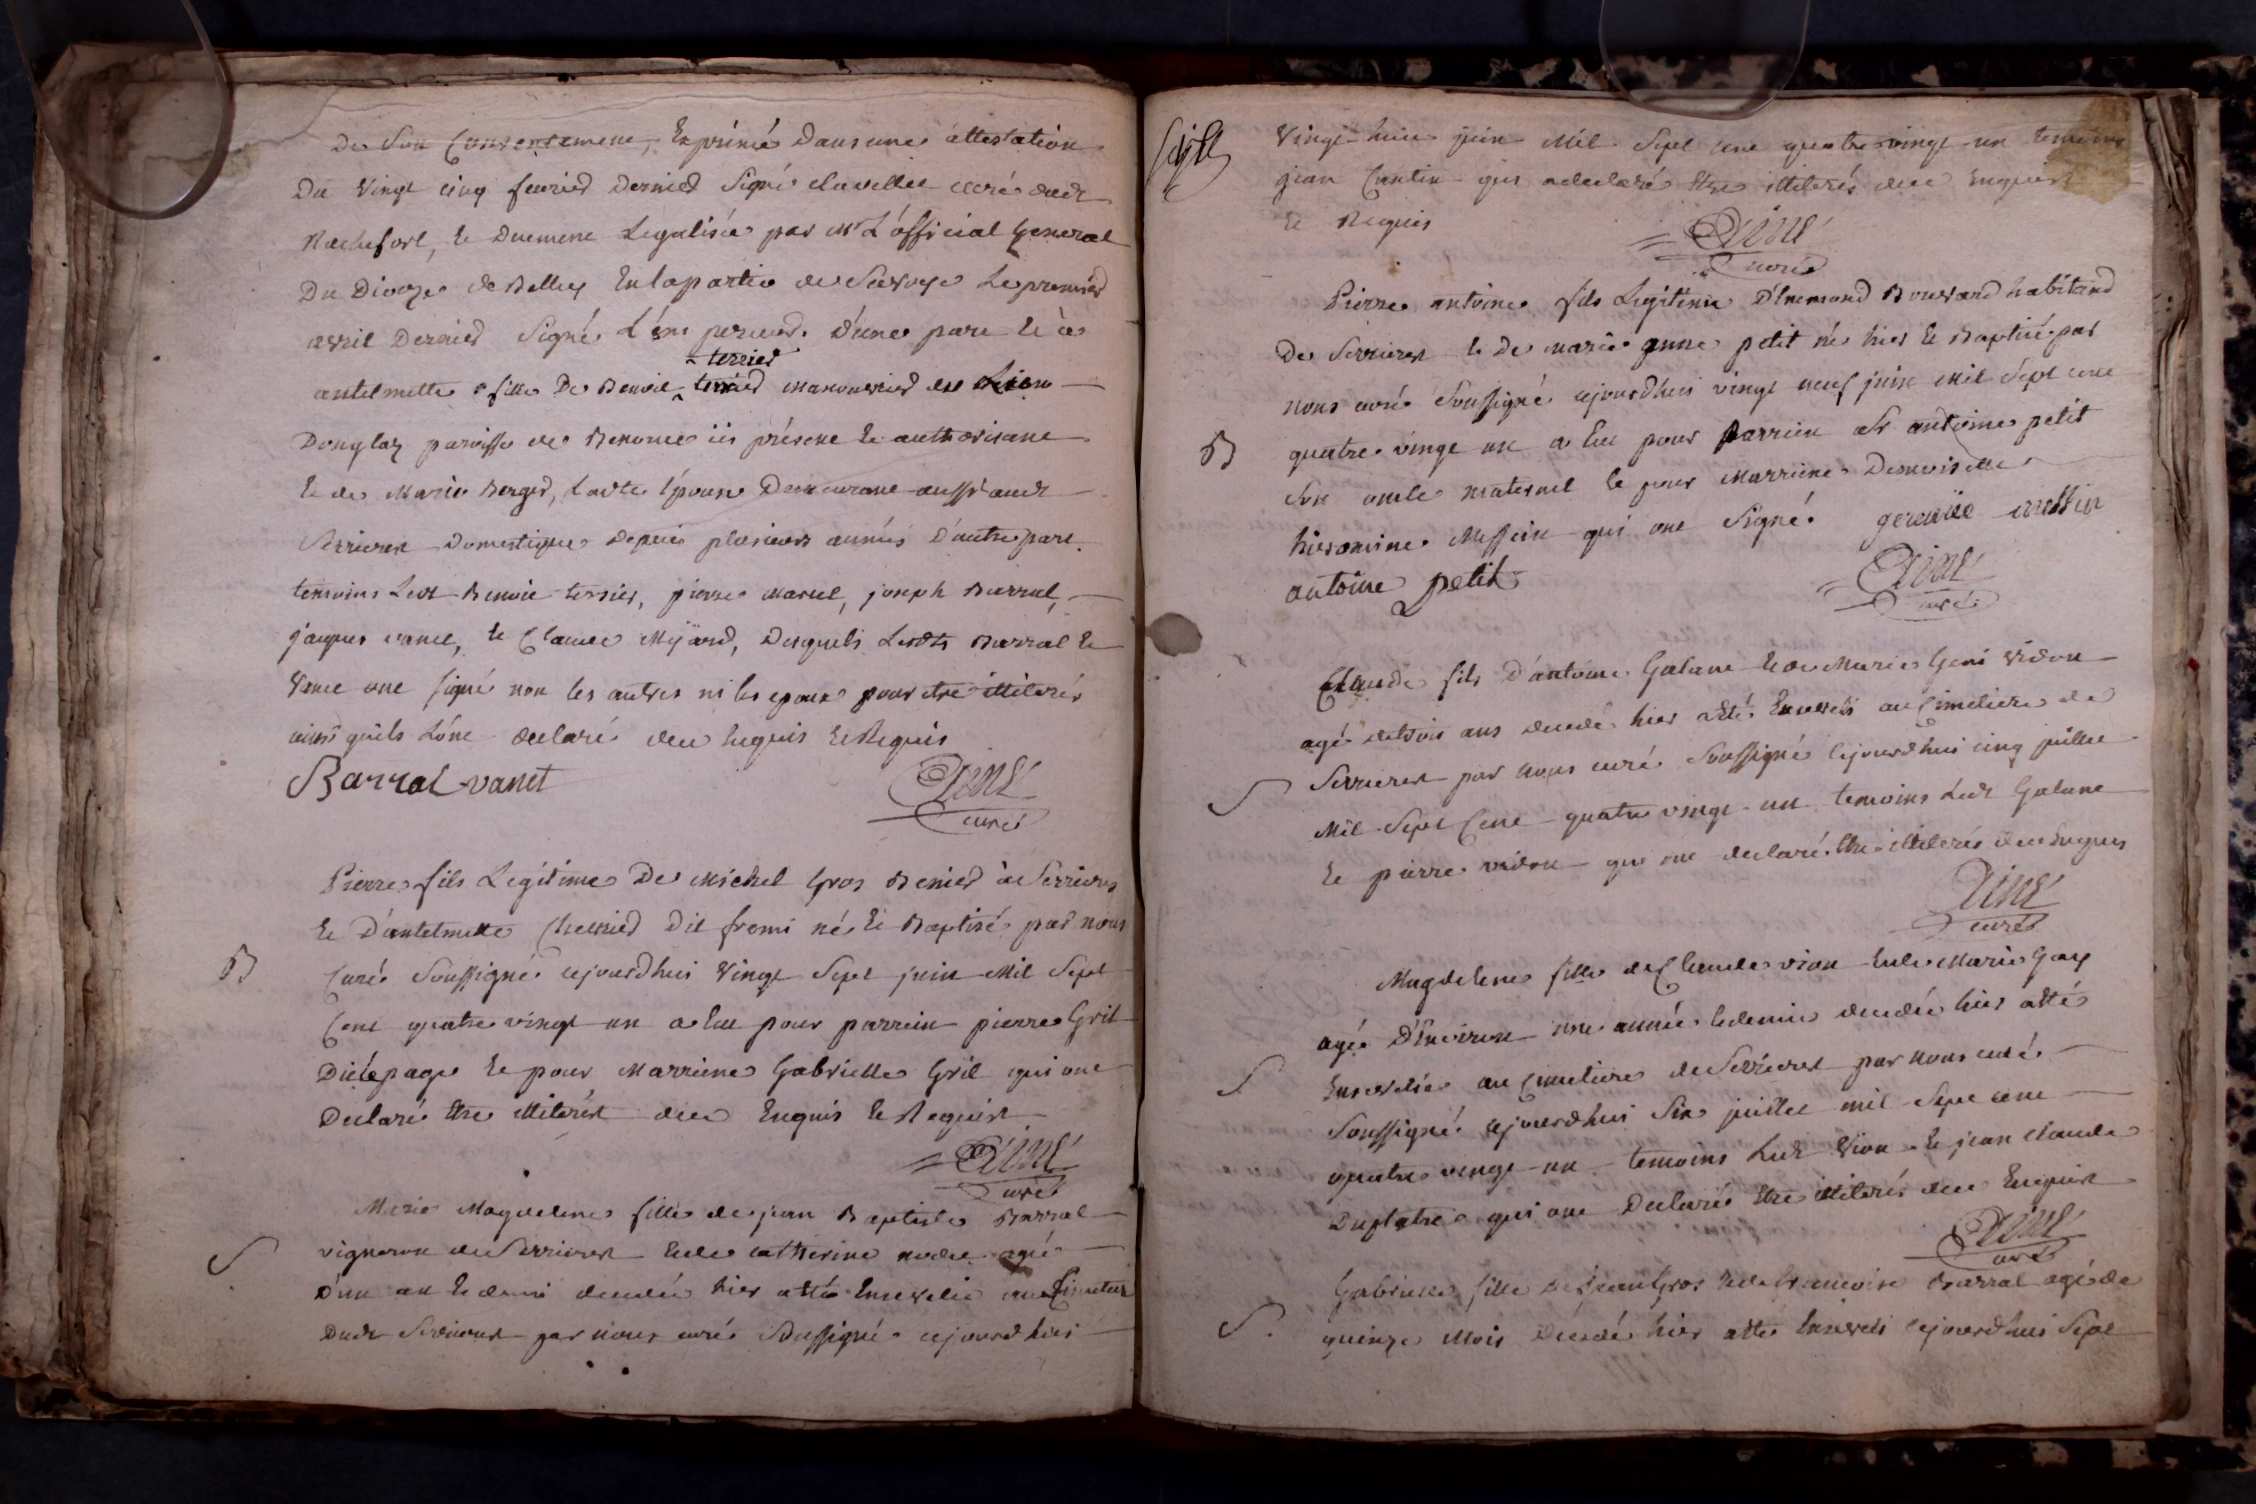 De Son Consentement, Exprimé Dans une attestation
Du Vingt cinq fevrier Dernier Signé clavellet curé dudt
Rochefort, le Duement Legalisée par Mr L'official General
Du Dioceze de Belley En la partie de Savoye Le premier
avril Dernier Signé d'une part Et
terrier
antelmette fille De Benoit manouvrier de
Donglaz paroisse de Benonce ici présent Et authorisant
Et de Marie Berger, Ladte Epouse Demeurant aussi audt
Serrieres Domestique depuis plusieurs années D'autre part.
temoins Ledt Benoit terrier, pierre Marcel, joseph Barral,
jacques vanel, Et Claude Mijard, Desquels Lesdts Barral Et
Vanel ont signé non les autres ni les epoux pour etre illiterés
ainsi quils L'ont declaré deu Enquis Et Requis
Barral vanet
curé
Pierre fils Legitime De Michel Gros Benier de Serrieres
Et D'antelmette Chevrier Dit fromi né Et Baptisé par nous
B
Curé Soussigné cejourdhui Vingt Sept juin Mil Sept
Cent quatre vingt un a Eu pour parrein pierre Gril
Dit lepage Et pour Marreine Gabrielle Gril qui ont
Declaré Etre illiterés deu Enquis Et Requis
curé
Marie Magdelene fille de jean Baptiste Barral
S
vigneron de Serrieres Et de catherine agée
D'un an Et demi decedée hier a été Ensevelie au Cimetiere
Dudt Serrieres par nous curé Soussigné cejourdhui
Vingt huit juin Mil Sept cent quatre vingt un temoins
jean Cantin qui a declaré Etre illiteré deu Enquis
Et Requis
curé
Pierre antoine fils Legitime D'Enemond Bouvard habitant
De Serrieres Et De marie anne petit né hier Et Baptisé par
nous curé Soussigné cejourdhui vingt neuf juin Mil Sept cent
B
quatre vingt un a Eu pour parrein Sr antoine petit
Son oncle maternel Et pour Marreine Demoiselle
hieronime Messein qui ont Signé.
antoine petit
curé
Claude fils D'antoine Galane Et de Marie Geni vidon
agé de trois ans decedé hier a été Enseveli au Cimetiere de
S
Serrieres par nous curé Soussigné Cejourdhui cinq juillet
Mil Sept Cent quatre vingt un temoins Ledt Galane
Et pierre vidon qui ont declaré Etre illiterés deu Enquis
curé
Magdelene fille de Claude vion Et de Marie Gay
agée D'Environ une année Et demie decedée hier a été
S
Ensevelie au Cimetiere de Serrieres par nous curé
Soussigné cejourdhui Six juillet mil Sept cent
quatre vingt un temoins Ledt Vion Et jean claude
Duplatre qui ont Declaré Etre illiterés deu Enquis
curé
Gabrielle fille de jean Gros Et de francoise Barral agée de
S
quinze Mois Decedée hier a été Enseveli cejourdhui Sept